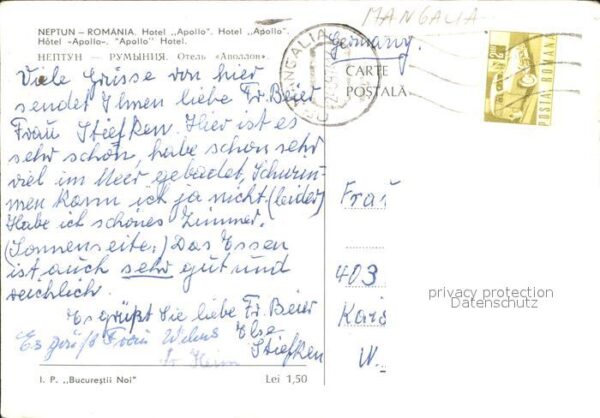 MANGALIA
NEPTUN – ROMANIA. Hotel „Apollo”. Hotel „Apollo”.
Hôtel «Apollo». "Apollo" Hotel.
НЕПТУН — РУМЫНИЯ. Отель «Аполлон».
MANGALIA
Germany.
CARTE
POSTALĂ
POSTA ROMANA
Viele Grüsse von hier
sendet Ihnen liebe Fr. Beier
Frau Stiefken. Hier ist es
sehr schön, habe schon sehr
viel im Meer gebadet, Schwim-
men kann ich ja nicht (leider)
Habe ich schönes Zimmer.
(Sonnenseite.) Das Essen
ist auch sehr gut und
reichlich.
Es grüßt Sie liebe Fr. Beier
Else
Stiefken
Es grüßt Frau
Frau
403
W.
privacy protection
Datenschutz
I. P. „Bucureştii Noi”
Lei 1,50